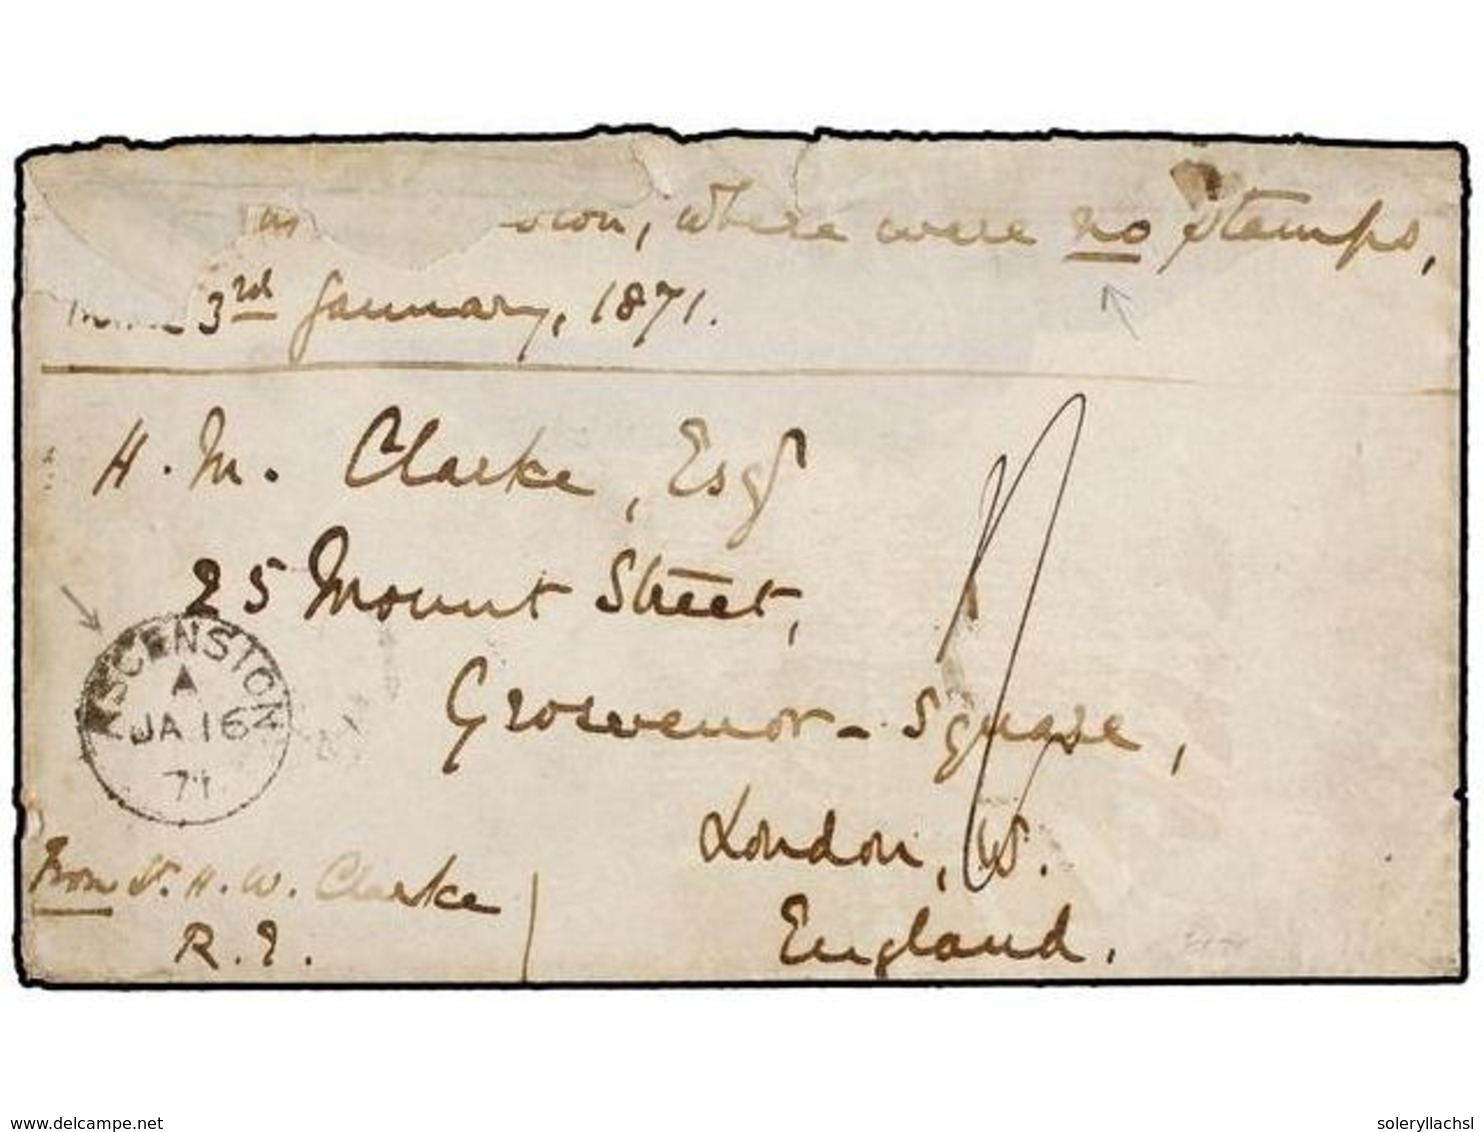 as sion, where were no stamps,
3rd January, 1871.
H. M. Clarke, Esqr
25 Mount Street,
Grosvenor - Square,
London, W.
England.
ASCENSION
A
JA 16
71
From Lt. H. W. Clarke
R. E.
www.delcampe.net
soleryllachsl